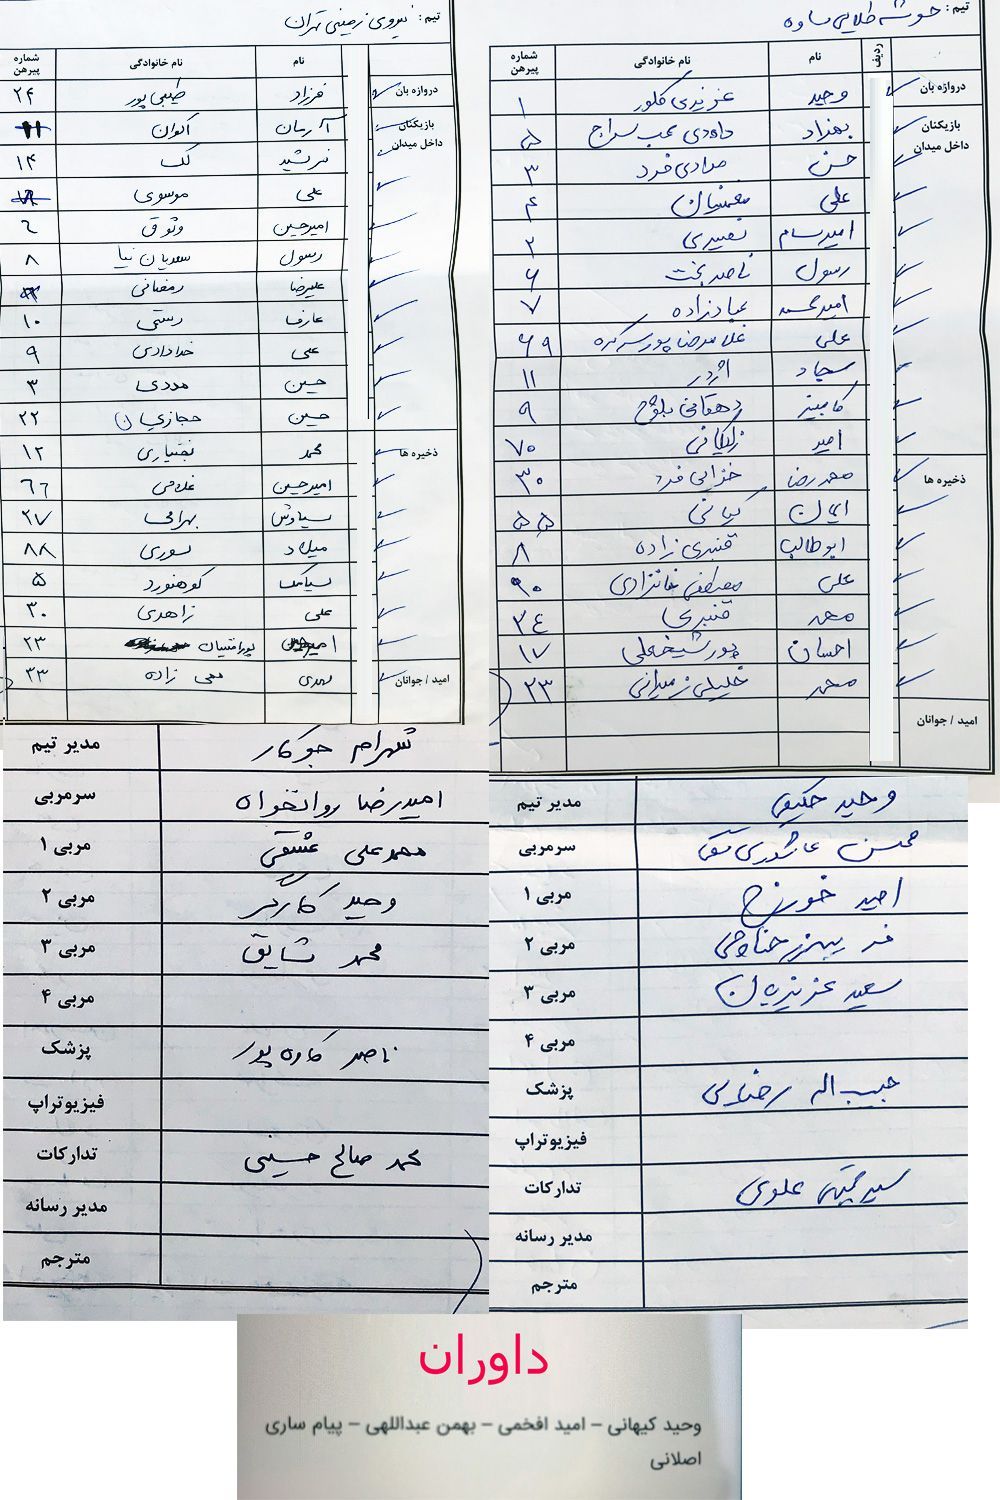 تیم: خوشه طلایی ساوه
شماره پیرهن نام خانوادگی نام ردیف
۱ عزیزی کلور وحید دروازه بان
۵ داودی بهزاد بازیکنان
۳ مرادی فرد حسن داخل میدان
۴ علی
۲ نصیری امیرسام
۶ ناصربخت رسول
۷ عبادزاده امیرمحمد
۶۹ غلامرضاپور علی
۱۱ اژدر سجاد
۹ دهقانی کامبیز
۷۰ امیر
۳۰ خزایی فرد محمدرضا ذخیره ها
۵۵ کیانی ایمان
۸ قنبری زاده ابوطالب
۹۰ علی
۳۴ قنبری محمد
۱۷ پورشیخعلی احسان
۲۳ محمد
امید / جوانان
مدیر تیم وحید حکیمی
سرمربی محسن عاشوری
مربی ۱ امید
مربی ۲ فریبرز
مربی ۳ سعید عزیزیان
مربی ۴
پزشک حبیب اله رضایی
فیزیوتراپ
تدارکات سید علوی
مدیر رسانه
مترجم
تیم: نیروی زمینی تهران
شماره پیرهن نام خانوادگی نام
۲۴ طیبی پور فرزاد دروازه بان
۱۱ اکوان آرمان بازیکنان
۱۴ لک فرشید داخل میدان
موسوی علی
۶ وثوق امیرحسین
۸ سعدیان نیا رسول
رمضانی علیرضا
۱۰ رستمی عارف
۹ خدادادی علی
۳ حسین
۲۲ حجازیان حسین
۱۲ بختیاری محمد ذخیره ها
۶۶ غلامی امیرحسین
۲۷ بهرامی سیاوش
۸۸ سوری میلاد
۵ کوهنورد سیامک
۳۰ زاهدی علی
۲۳ امیرحسین
۳۳ زاده مهدی امید / جوانان
مدیر تیم شهرام جوکار
سرمربی امیررضا روانخواه
مربی ۱ محمدعلی عشقی
مربی ۲ وحید کارگر
مربی ۳ محمد شایق
مربی ۴
پزشک ناصر کاوه پور
فیزیوتراپ
تدارکات محمد صالح حسینی
مدیر رسانه
مترجم
داوران
وحید کیهانی – امید افخمی – بهمن عبداللهی – پیام ساری
اصلانی